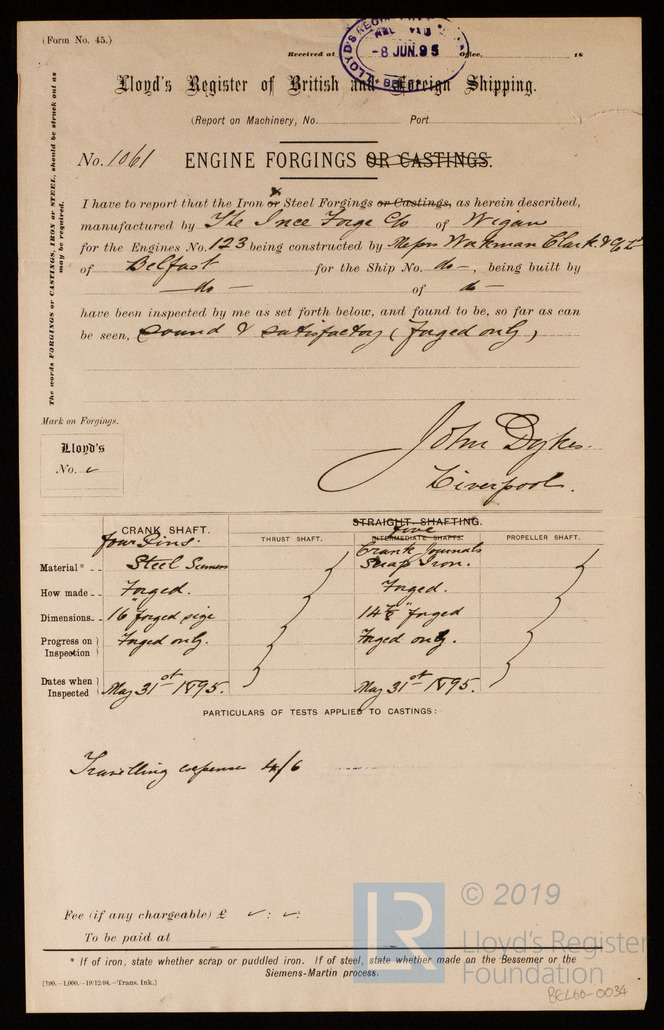 (Form No. 45.)
Received at Office, 18
LLOYD'S REGIS
-8 JUN.95
Lloyd's Register of British and Foreign Shipping.
(Report on Machinery, No. Port )
No. 1061 ENGINE FORGINGS OR CASTINGS.
The words FORGINGS or CASTINGS, IRON or STEEL, should be struck out as
may be required.
I have to report that the Iron or & Steel Forgings or Castings, as herein described,
manufactured by The Ince Forge Co of Wigan
for the Engines No. 123 being constructed by Messrs Workman Clark & Co Ld
of Belfast for the Ship No. do –, being built by
do – of do –
have been inspected by me as set forth below, and found to be, so far as can
be seen, sound & satisfactory (forged only)
Mark on Forgings.
Lloyd's
No. ✓
John Dykes.
Liverpool.
CRANK SHAFT. THRUST SHAFT. STRAIGHT SHAFTING. INTERMEDIATE SHAFTS. PROPELLER SHAFT.
four Pins. five Crank Journals
Material* Steel Siemens Scrap Iron.
How made Forged. Forged.
Dimensions 16" forged size 14½" forged
Progress on Inspection Forged only. Forged only.
Dates when Inspected May 31st – 1895. May 31st – 1895.
PARTICULARS OF TESTS APPLIED TO CASTINGS:
Travelling expense 4/6
Fee (if any chargeable) £ ✓ : ✓:
To be paid at
* If of iron, state whether scrap or puddled iron. If of steel, state whether made on the Bessemer or the
Siemens-Martin process.
[190.—1,000.—19/12/94.—Trans. Ink.]
LR
© 2019
Lloyd's Register
Foundation
BEL60-0034